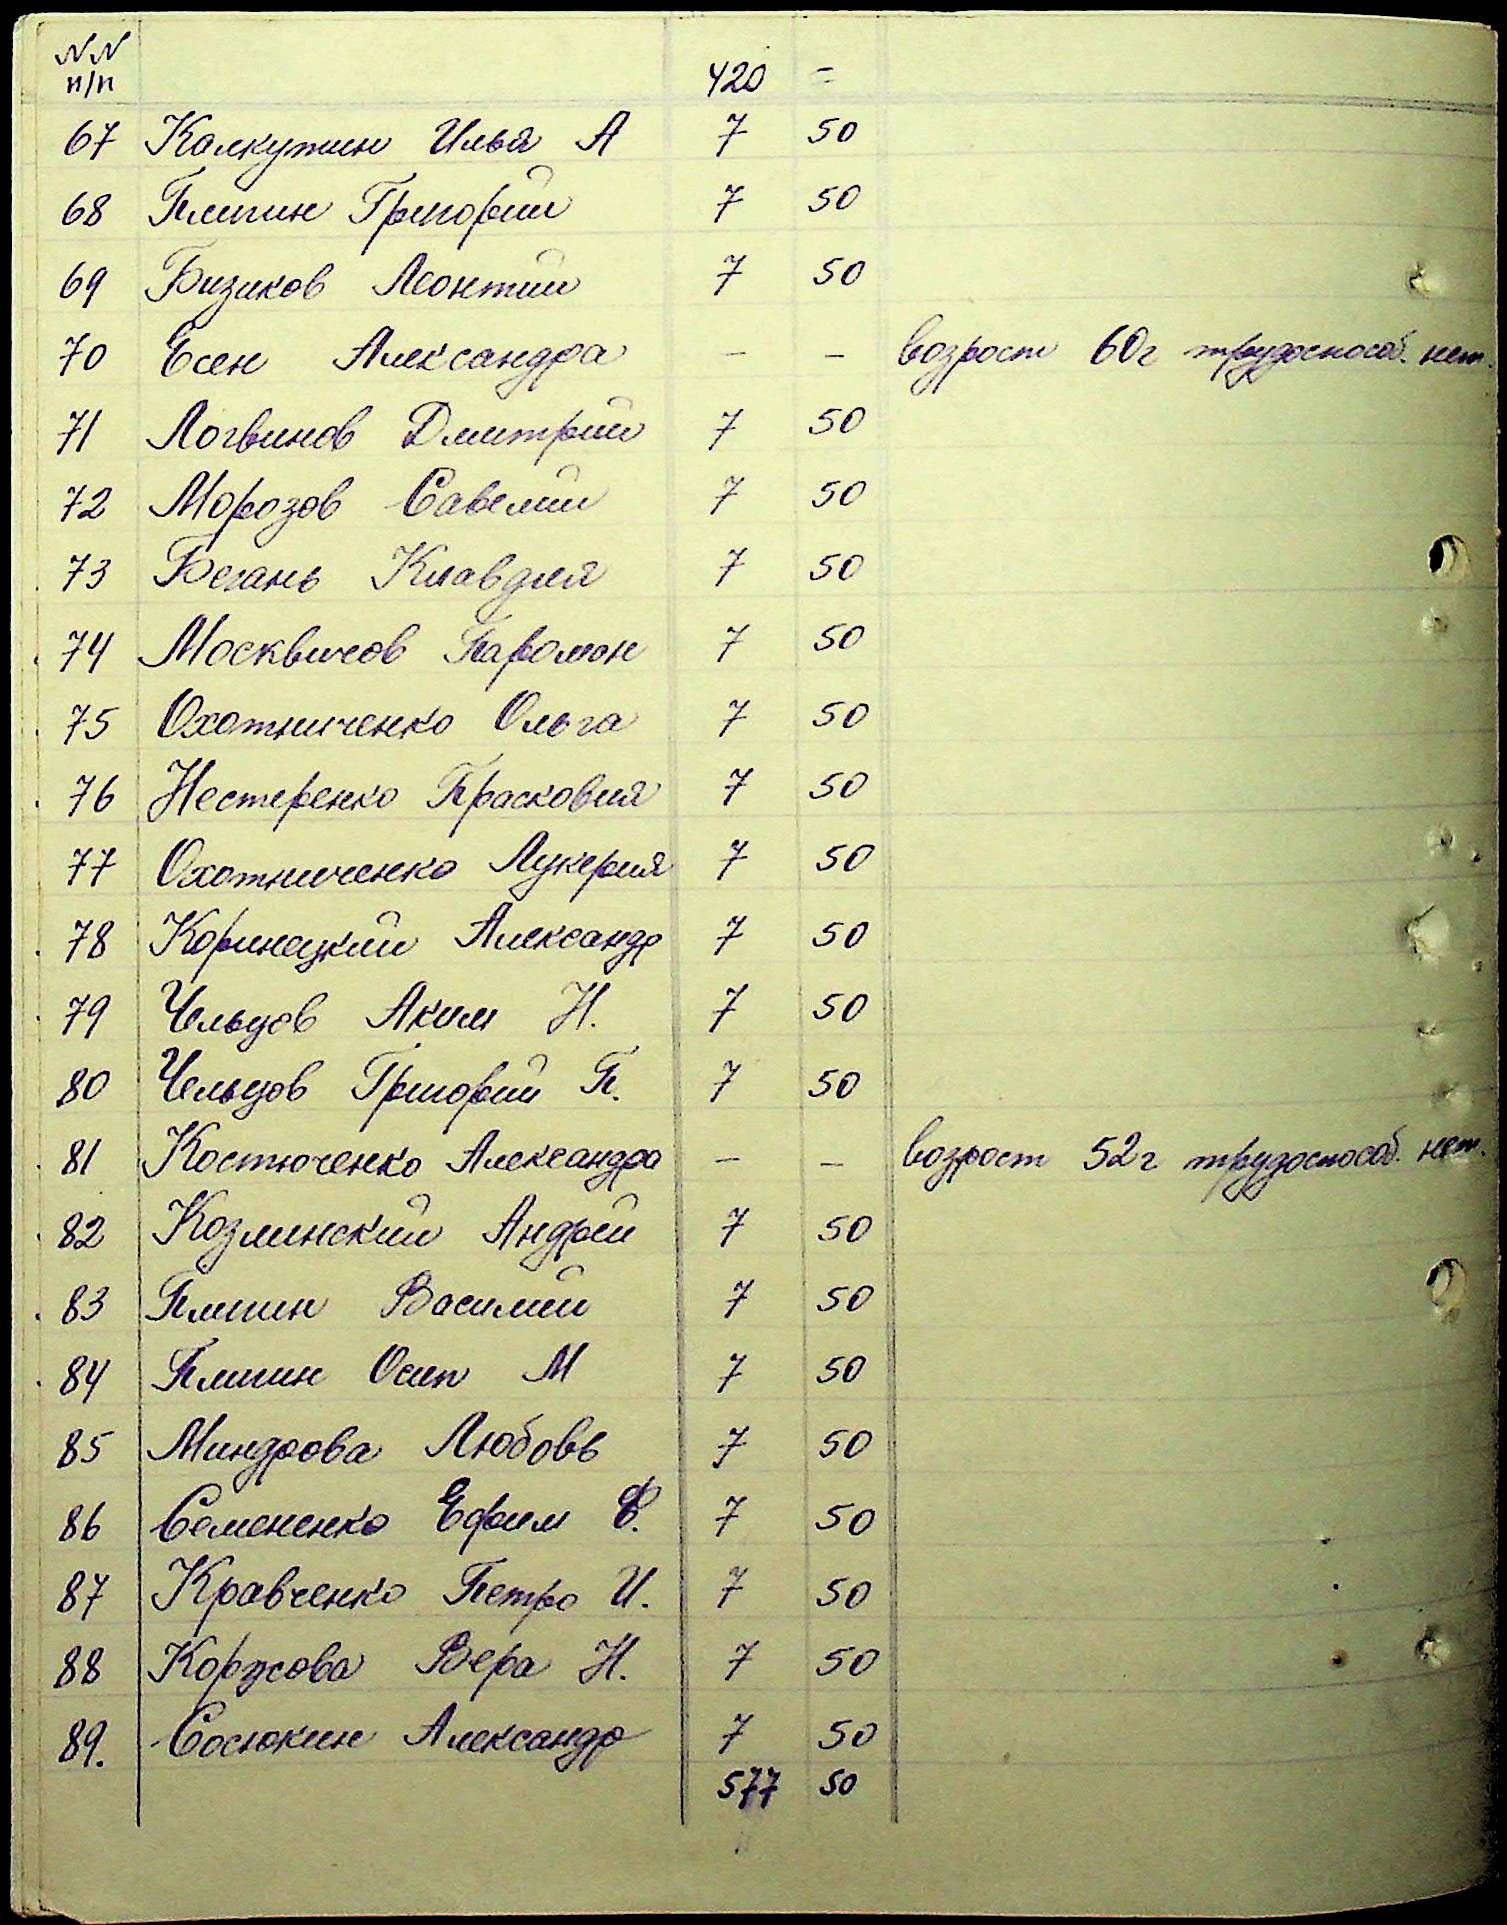 NN
п/п 420 =
67 Калкутин Илья А 7 50
68 Плигин Григорий 7 50
69 Бизиков Леонтий 7 50
70 Есен Александра – – возраст 60г трудоспособ. нет.
71 Логвинов Дмитрий 7 50
72 Морозов Савелий 7 50
73 Бегань Клавдия 7 50
74 Москвичов Парамон 7 50
75 Охотниченко Ольга 7 50
76 Нестеренко Прасковия 7 50
77 Охотниченко Лукерия 7 50
78 Коринецкий Александр 7 50
79 Чельцов Аким Н. 7 50
80 Чельцов Григорий П. 7 50
81 Костюченко Александра – – возраст 52г трудоспособ. нет.
82 Козлинский Андрей 7 50
83 Плигин Василий 7 50
84 Плигин Осип М 7 50
85 Миндрова Любовь 7 50
86 Семененко Ефим Ф. 7 50
87 Кравченко Петро И. 7 50
88 Коржова Вера Н. 7 50
89. Сосюкин Александр 7 50
577 50